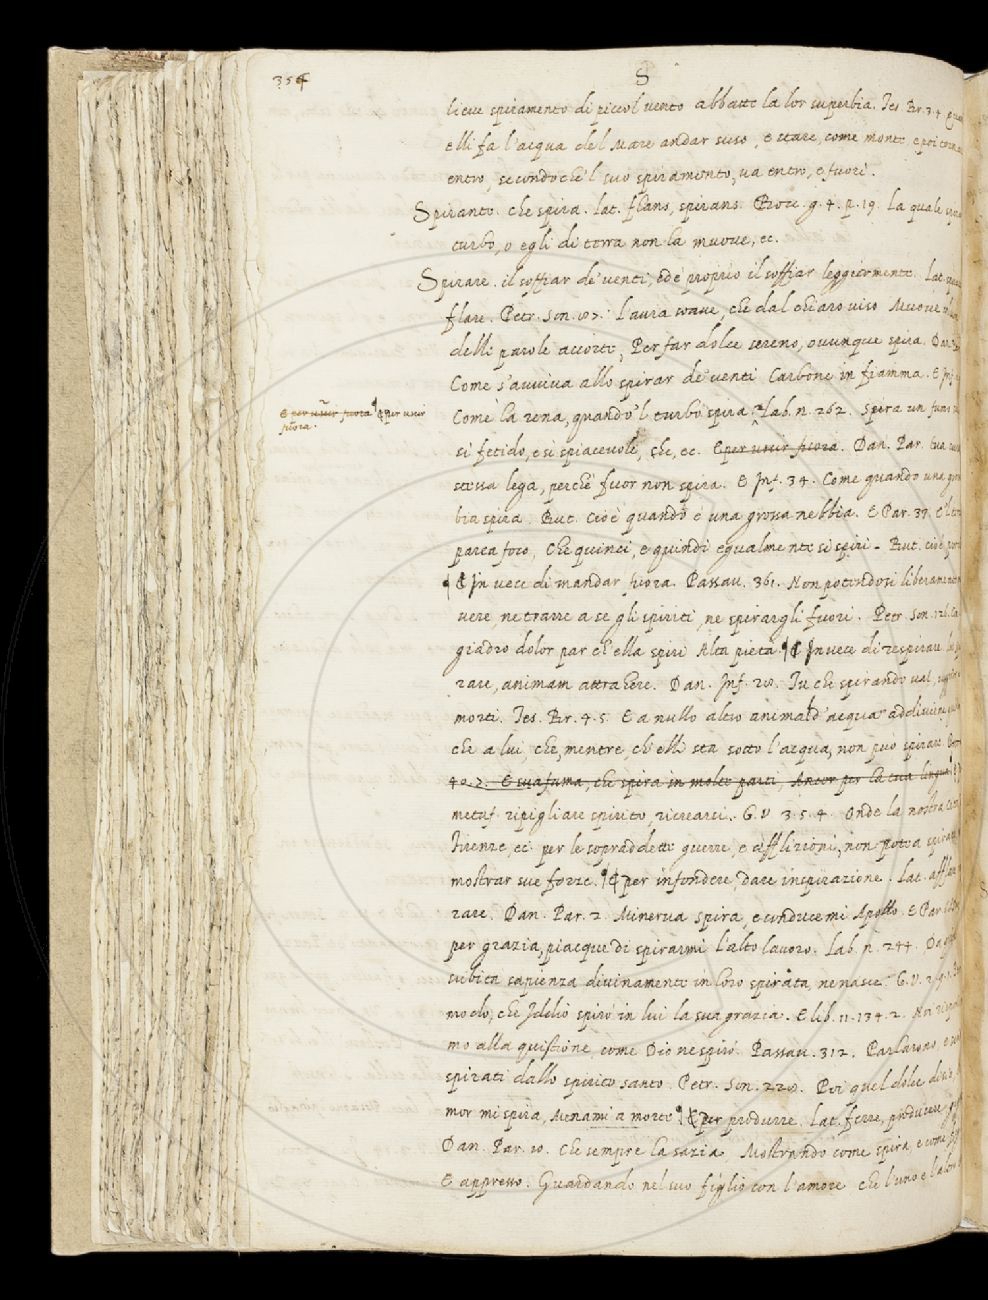 354 S
lieve spiramento di piccol vento abbatte la lor superbia. Tes. Br. 3. 4.
elli fa l'acqua del Mare andar suso, e stare, come monte, e poi torna
entro, secondo che'l suo spiramento, va entro, e fuori.
Spirante. che spira. lat. flans, spirans. Bocc. g. 4. p. 19. La quale
turbo, o egli di terra non la muove, ec.
Spirare. il soffiar de' venti, ed è proprio il soffiar leggiermente. Lat.
flare. Petr. Son. 87. L'aura soave, che dal chiaro viso Muove
delle parole accorte, Per far dolce sereno, ovunque spira.
Come s'avviva allo spirar de' venti Carbone in fiamma. E
Come la rena, quando'l turbo spira. Lab. n. 262. Spira un fumo
E per uscir fuora ¶ E per uscir
fuora.
si fetido, e sì spiacevole, che, ec. E per uscir fuora. Dan. Par.
stessa lega, perchè fuor non spira. E Inf. 34. Come quando una
bia spira. But. cioè quando è una grossa nebbia. E Par.
parea foco, Che quinci, e quindi egualmente si spiri. But. cioè
¶ E In vece di mandar fuora. Passav. 361. Non potendosi liberamente
vere, ne trarre a se gli spiriti, ne spirargli fuori. Petr. Son. 126.
giadro dolor par ch'ella spiri Alta pietà ¶ E In vece di respirare
rare, animam attrahere. Dan. Inf. 28. Tu che spirando vai,
morti. Tes. Br. 4. 5. E a nullo altro animal d'acqua addiviene
che a lui, che, mentre, ch'elli sta sotto l'acqua, non può spirare.
E sua fama, che spira in molte parti, Ancor per la tua lingua
metaf. ripigliare spirito, ricrearsi. G. V. 3. 5. 4. Onde la nostra
Firenze, ec. per le sopraddette guerre, e afflizioni, non potea
mostrar sue forze. ¶ E per infondere, dare inspirazione. Lat.
rare. Dan. Par. 2. Minerva spira, e conducemi Apollo. E Par.
per grazia, piacque di spirarmi L'alto lavoro. Lab. n. 244.
subita sapienza divinamente in loro spirata, ne nasce. G. V.
modo, che Iddio spirò in lui la sua grazia. E lib. 11. 134. 2.
mo alla quistione, come Dio ne spirò. Passav. 312. Parlarono
spirati dallo spirito santo. Petr. Son. 228. Poi quel dolce
mor mi spira, Menami a morte ¶ E per produrre. Lat. ferre, producere
Dan. Par. 10. Che sempre la sazia, Mostrando come spira, e come
E appresso. Guardando nel suo figlio con l'amore che l'uno e l'altro